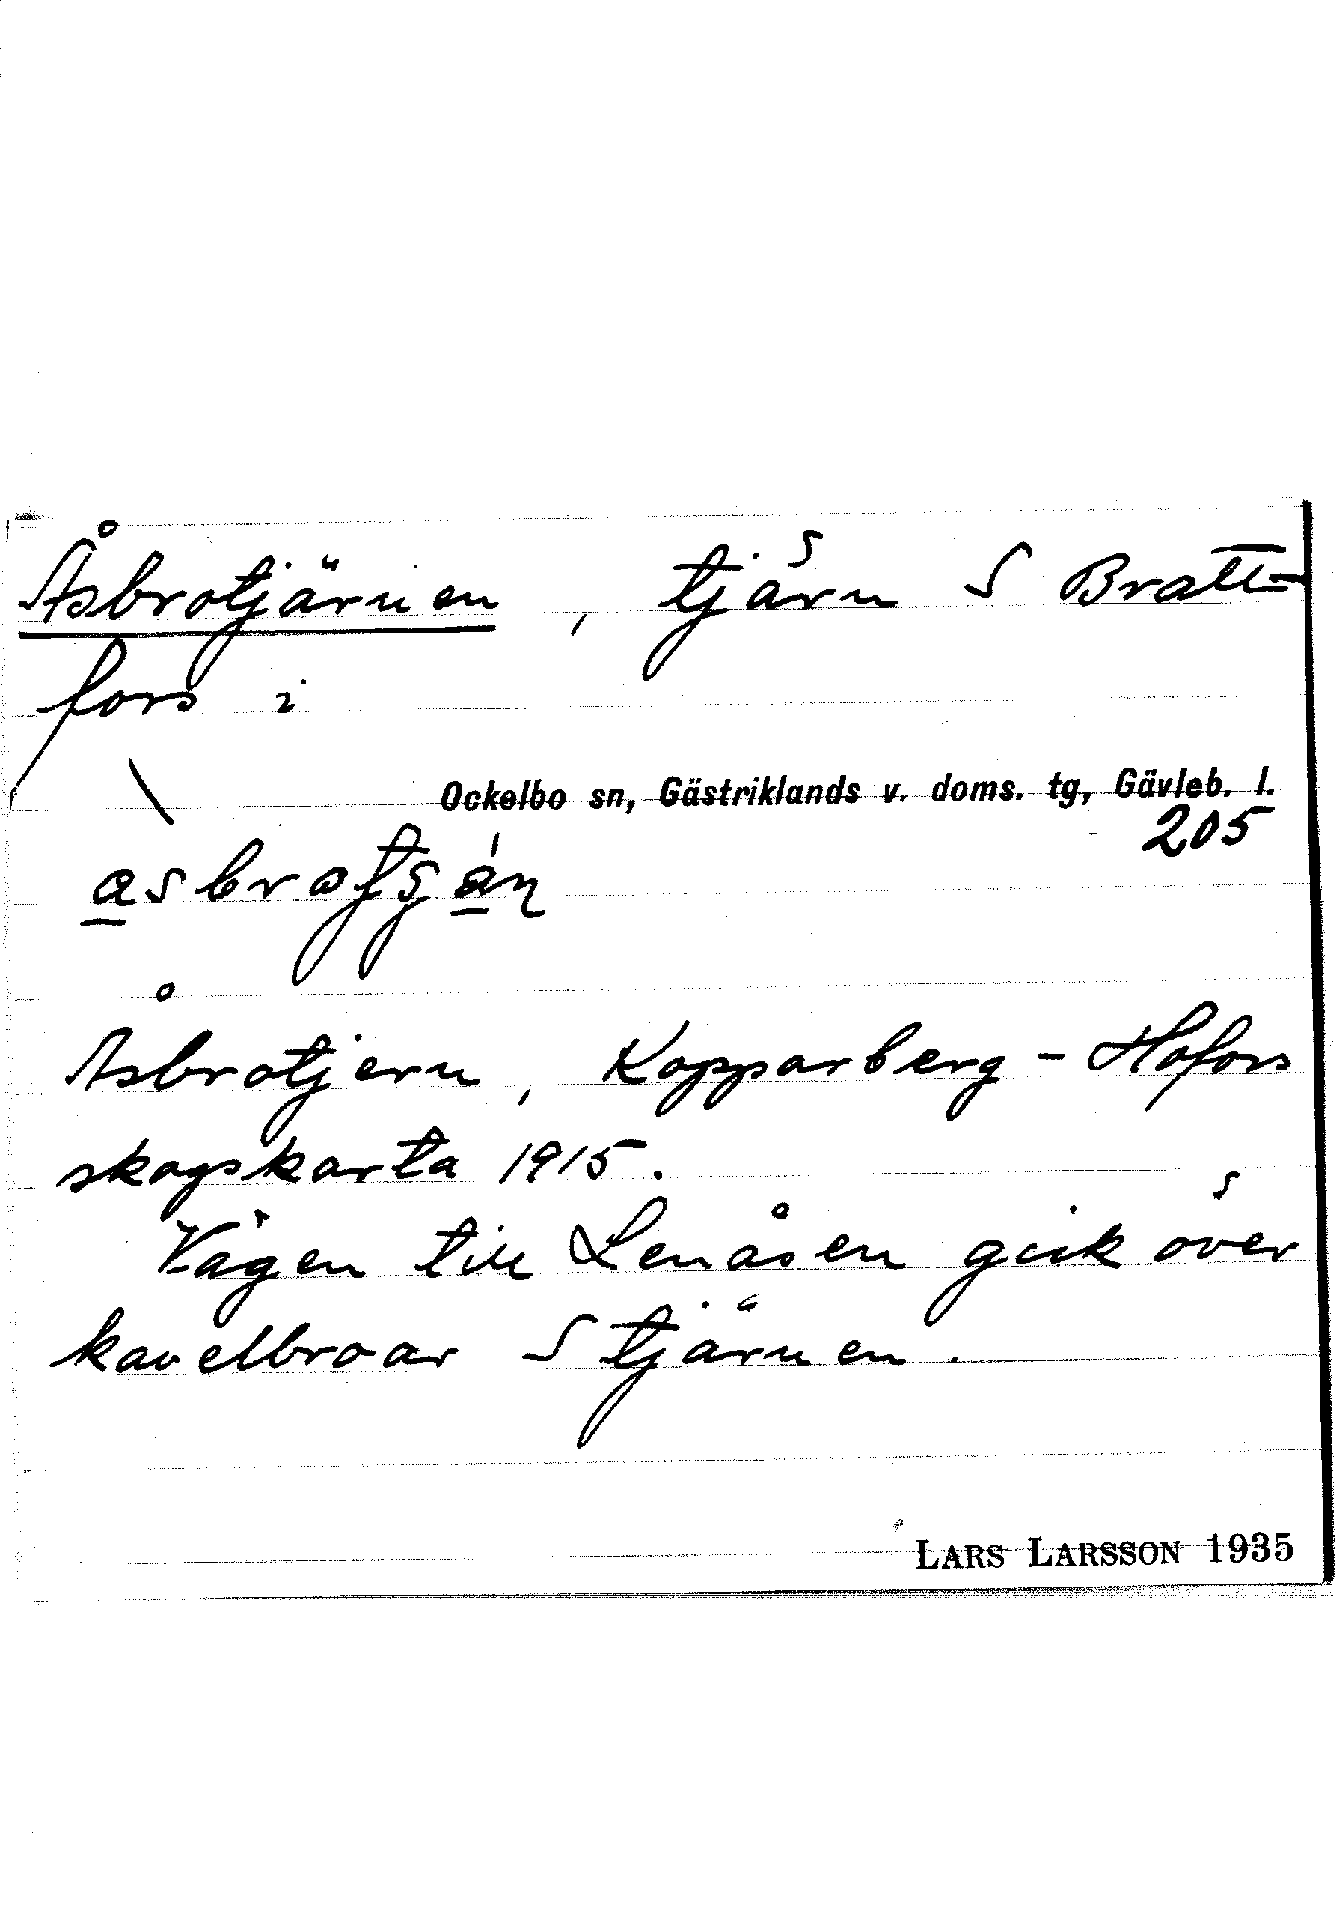 Åsbrotjärnen, tjärn S Bratt-
fors i
Ockelbo sn, Gästriklands v. doms. tg, Gävleb. l.
205
Åsbrotjern, Kopparberg - Hofors
skogskarta 1915.
Vägen till Lenåsen gick över
kavelbroar S tjärnen.
LARS LARSSON 1935